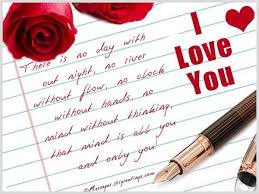 I ♥
Love
You
There is no day with
out night, no river
without flow, no clock
without hands, no
mind without thinking,
that mind is all you
and only you!